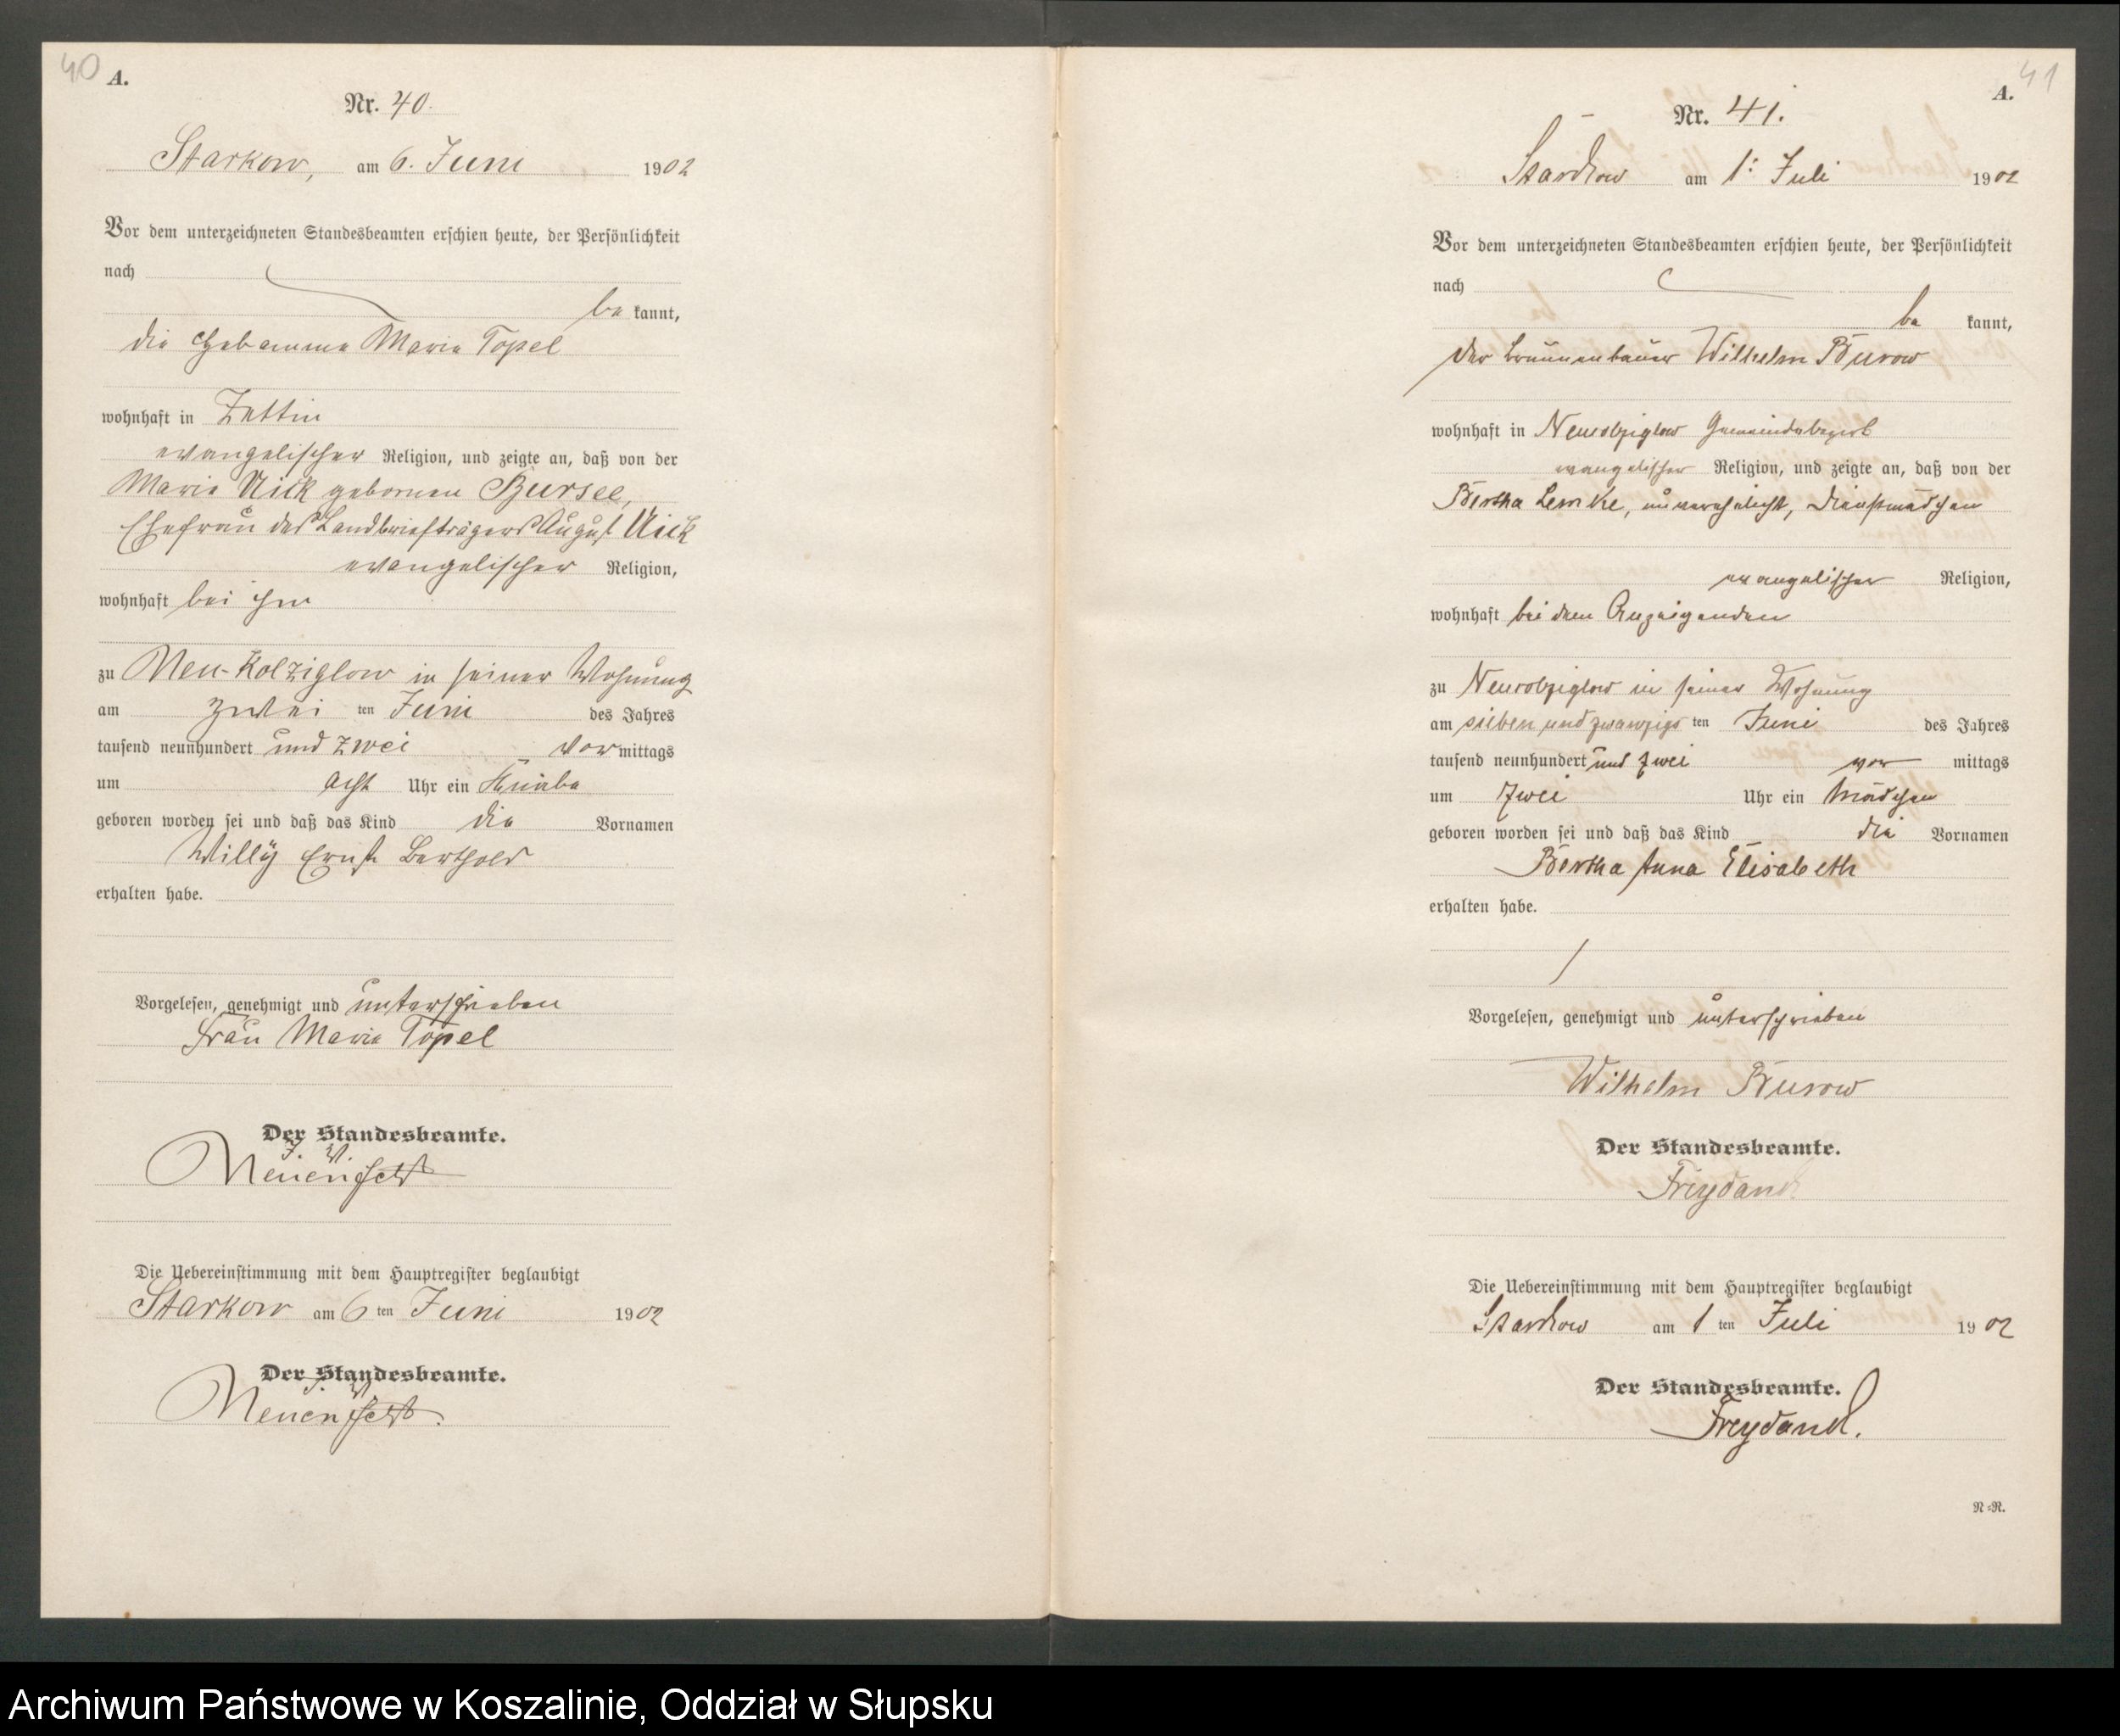 40
A.
Nr. 40.
Starkow, am 6. Juni 1902
Vor dem unterzeichneten Standesbeamten erschien heute, der Persönlichkeit
nach
be kannt,
die Hebamme Marie Topel
wohnhaft in Zettin
evangelischer Religion, und zeigte an, daß von der
Marie Uick gebornen Bursee,
Ehefrau des Landbriefträgers August Uick
evangelischer Religion,
wohnhaft bei ihm
zu Neu-Kolziglow in seiner Wohnung
am zwei ten Juni des Jahres
tausend neunhundert und zwei vormittags
um acht Uhr ein Knabe
geboren worden sei und daß das Kind die Vornamen
Willÿ Ernst Berthold
erhalten habe.
Vorgelesen, genehmigt und unterschrieben
Frau Marie Topel
Der Standesbeamte.
J. V.
Die Uebereinstimmung mit dem Hauptregister beglaubigt
Starkow am 6 ten Juni 1902
Der Standesbeamte.
J. V.
41
A.
Nr. 41.
Starckow am 1. Juli 1902
Vor dem unterzeichneten Standesbeamten erschien heute, der Persönlichkeit
nach
be kannt,
der Brunnenbauer Wilhelm Burow
wohnhaft in Neucolziglow Gemeindebezirk
evangelischer Religion, und zeigte an, daß von der
Bertha Lemke, unverehelicht, Dienstmädchen
evangelischer Religion,
wohnhaft bei dem Anzeigenden
zu Neucolziglow in seiner Wohnung
am sieben und zwanzigs ten Juni des Jahres
tausend neunhundert und zwei vor mittags
um zwei Uhr ein Mädchen
geboren worden sei und daß das Kind die Vornamen
Bertha Anna Elisabeth
erhalten habe.
Vorgelesen, genehmigt und unterschrieben
Wilhelm Burow
Der Standesbeamte.
Freydanck
Die Uebereinstimmung mit dem Hauptregister beglaubigt
Starckow am 1 ten Juli 1902
Der Standesbeamte.
Freydanck.
N=R.
Archiwum Państwowe w Koszalinie, Oddział w Słupsku